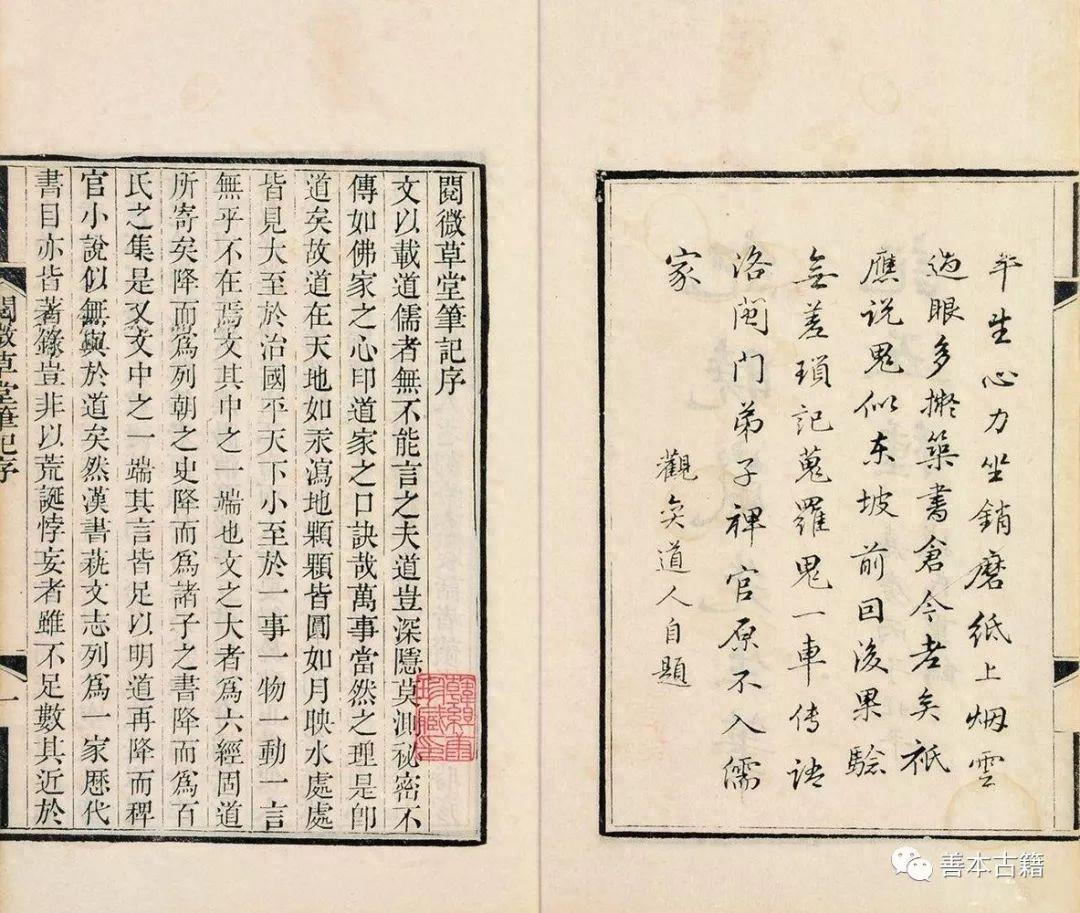 平生心力坐銷磨紙上烟雲
過眼多擬築書倉今老矣祇
應说鬼似东坡前回後果驗
無差瑣記蒐羅鬼一車傳語
洛閩门弟子稗官原不入儒
家
觀弈道人自題
閱微草堂筆記序
文以載道儒者無不能言之夫道豈深隱莫測祕密不
傳如佛家之心印道家之口訣哉萬事當然之理是卽
道矣故道在天地如汞瀉地顆顆皆圓如月映水處處
皆見大至於治國平天下小至於一事一物一動一言
無乎不在焉文其中之一端也文之大者爲六經固道
所寄矣降而爲列朝之史降而爲諸子之書降而爲百
氏之集是又文中之一端其言皆足以明道再降而稗
官小說似無與於道矣然漢書蓺文志列爲一家歷代
書目亦皆著錄豈非以荒誕悖妄者雖不足數其近於
閱微草堂筆記序
一
善本古籍